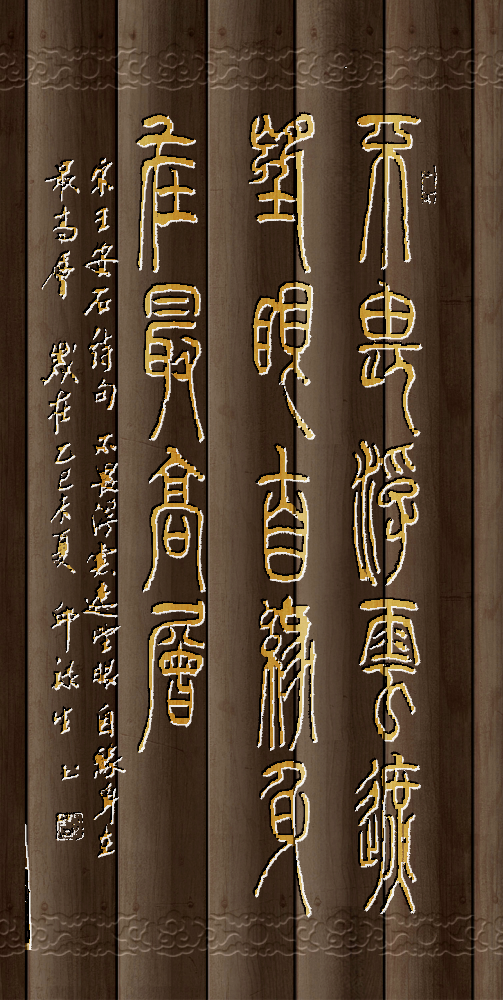 不畏浮雲遮
望眼自緣身
在最高層
宋王安石詩句 不畏浮雲遮望眼自緣身在
最高層 歲在乙巳夏